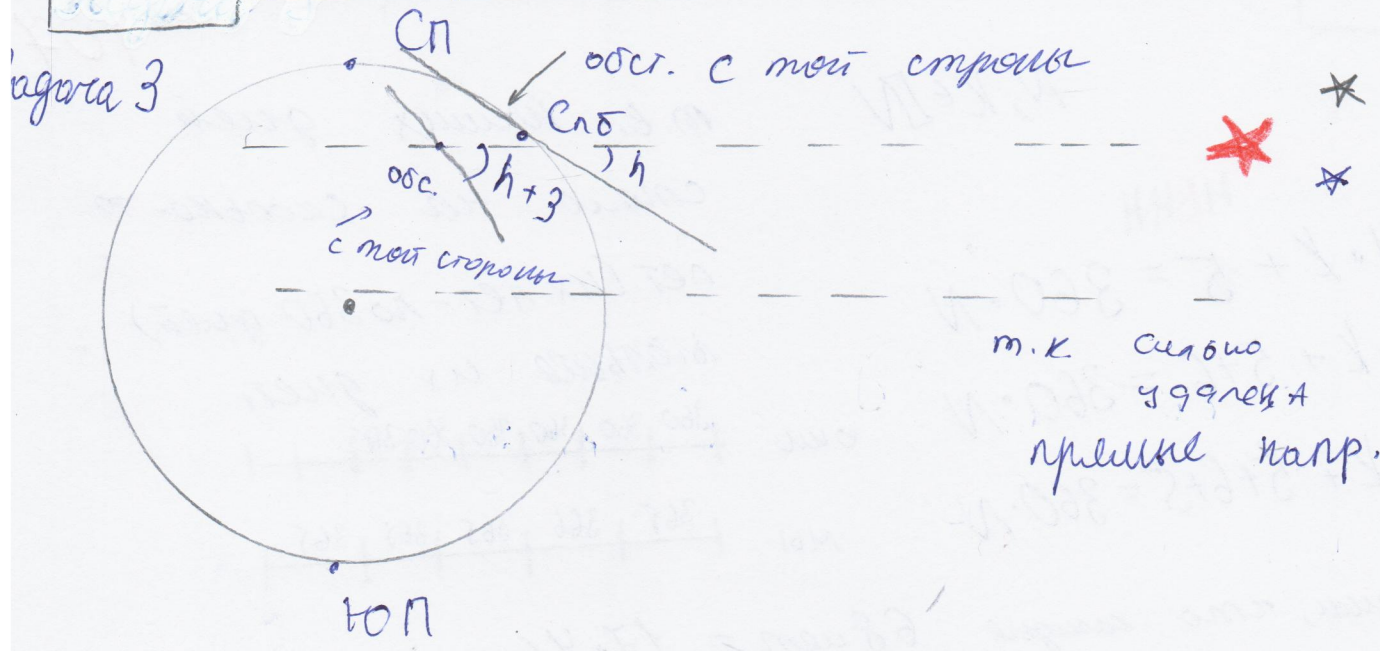 Задача 3
СП
обст. с той строны
Спб
h
обс.
h+3
с той стороны
т.к сильно
удалена
прямые напр.
ЮП